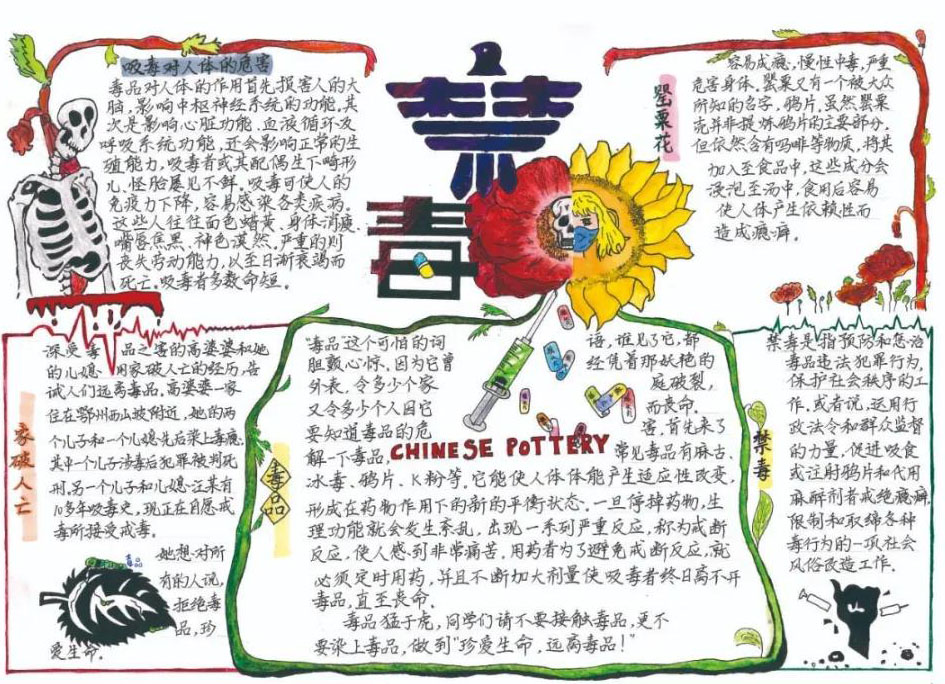 吸毒对人体的危害
毒品对人体的作用首先损害人的大
脑,影响中枢神经系统的功能,其
次是影响心脏功能,血液循环及
呼吸系统功能,还会影响正常的生
殖能力,吸毒者或其配偶生下畸形
儿、怪胎屡见不鲜。吸毒可使人的
免疫力下降,容易感染各类疾病。
这些人往往面色蜡黄、身体消瘦、
嘴唇焦黑、神色漠然,严重的则
丧失劳动能力,以至日渐衰竭而
死亡。吸毒者多数命短。
禁
毒
罂粟花
容易成瘾,慢性中毒,严重
危害身体,罂粟又有一个被大众
所知的名字,鸦片,虽然罂粟
壳并非提炼鸦片的主要部分,
但依然含有吗啡等物质,将其
加入至食品中,这些成分会
浸泡至汤中,食用后容易
使人体产生依赖性而
造成瘾癖。
家破人亡
深受毒品之害的高婆婆和她
的儿媳,用家破人亡的经历,告
诫人们远离毒品,高婆婆一家
住在鄂州西山坡附近,她的两
个儿子和一个儿媳先后染上毒瘾,
其中一个儿子涉毒后犯罪被判死
刑。另一个儿子和儿媳江某有
10多年吸毒史,现正在自愿戒
毒所接受戒毒。
她想对所
有的人说,
拒绝毒
品,珍
爱生命。
毒品
毒品
"毒品"这个可怕的词语,谁见了它,都
胆颤心惊,因为它曾经凭着那妖艳的
外表,令多少个家庭破裂,
又令多少个人因它而丧命。
要知道毒品的危害,首先来了
解一下毒品,常见毒品有麻古、
CHINESE POTTERY
冰毒、鸦片、K粉等,它能使人体体能产生适应性改变,
形成在药物作用下的新的平衡状态。一旦停掉药物,生
理功能就会发生紊乱,出现一系列严重反应,称为戒断
反应,使人感到非常痛苦,用药者为了避免戒断反应,就
必须定时用药,并且不断加大剂量使吸毒者终日离不开
毒品,直至丧命。
毒品猛于虎,同学们请不要接触毒品,更不
要染上毒品,做到"珍爱生命,远离毒品!"
禁毒
禁毒是指预防和惩治
毒品违法犯罪行为,
保护社会秩序的工
作。或者说,运用行
政法令和群众监督
的力量,促进吸食
或注射鸦片和代用
麻醉剂者戒绝瘾癖,
限制和取缔各种
毒行为的一项社会
风俗改造工作。